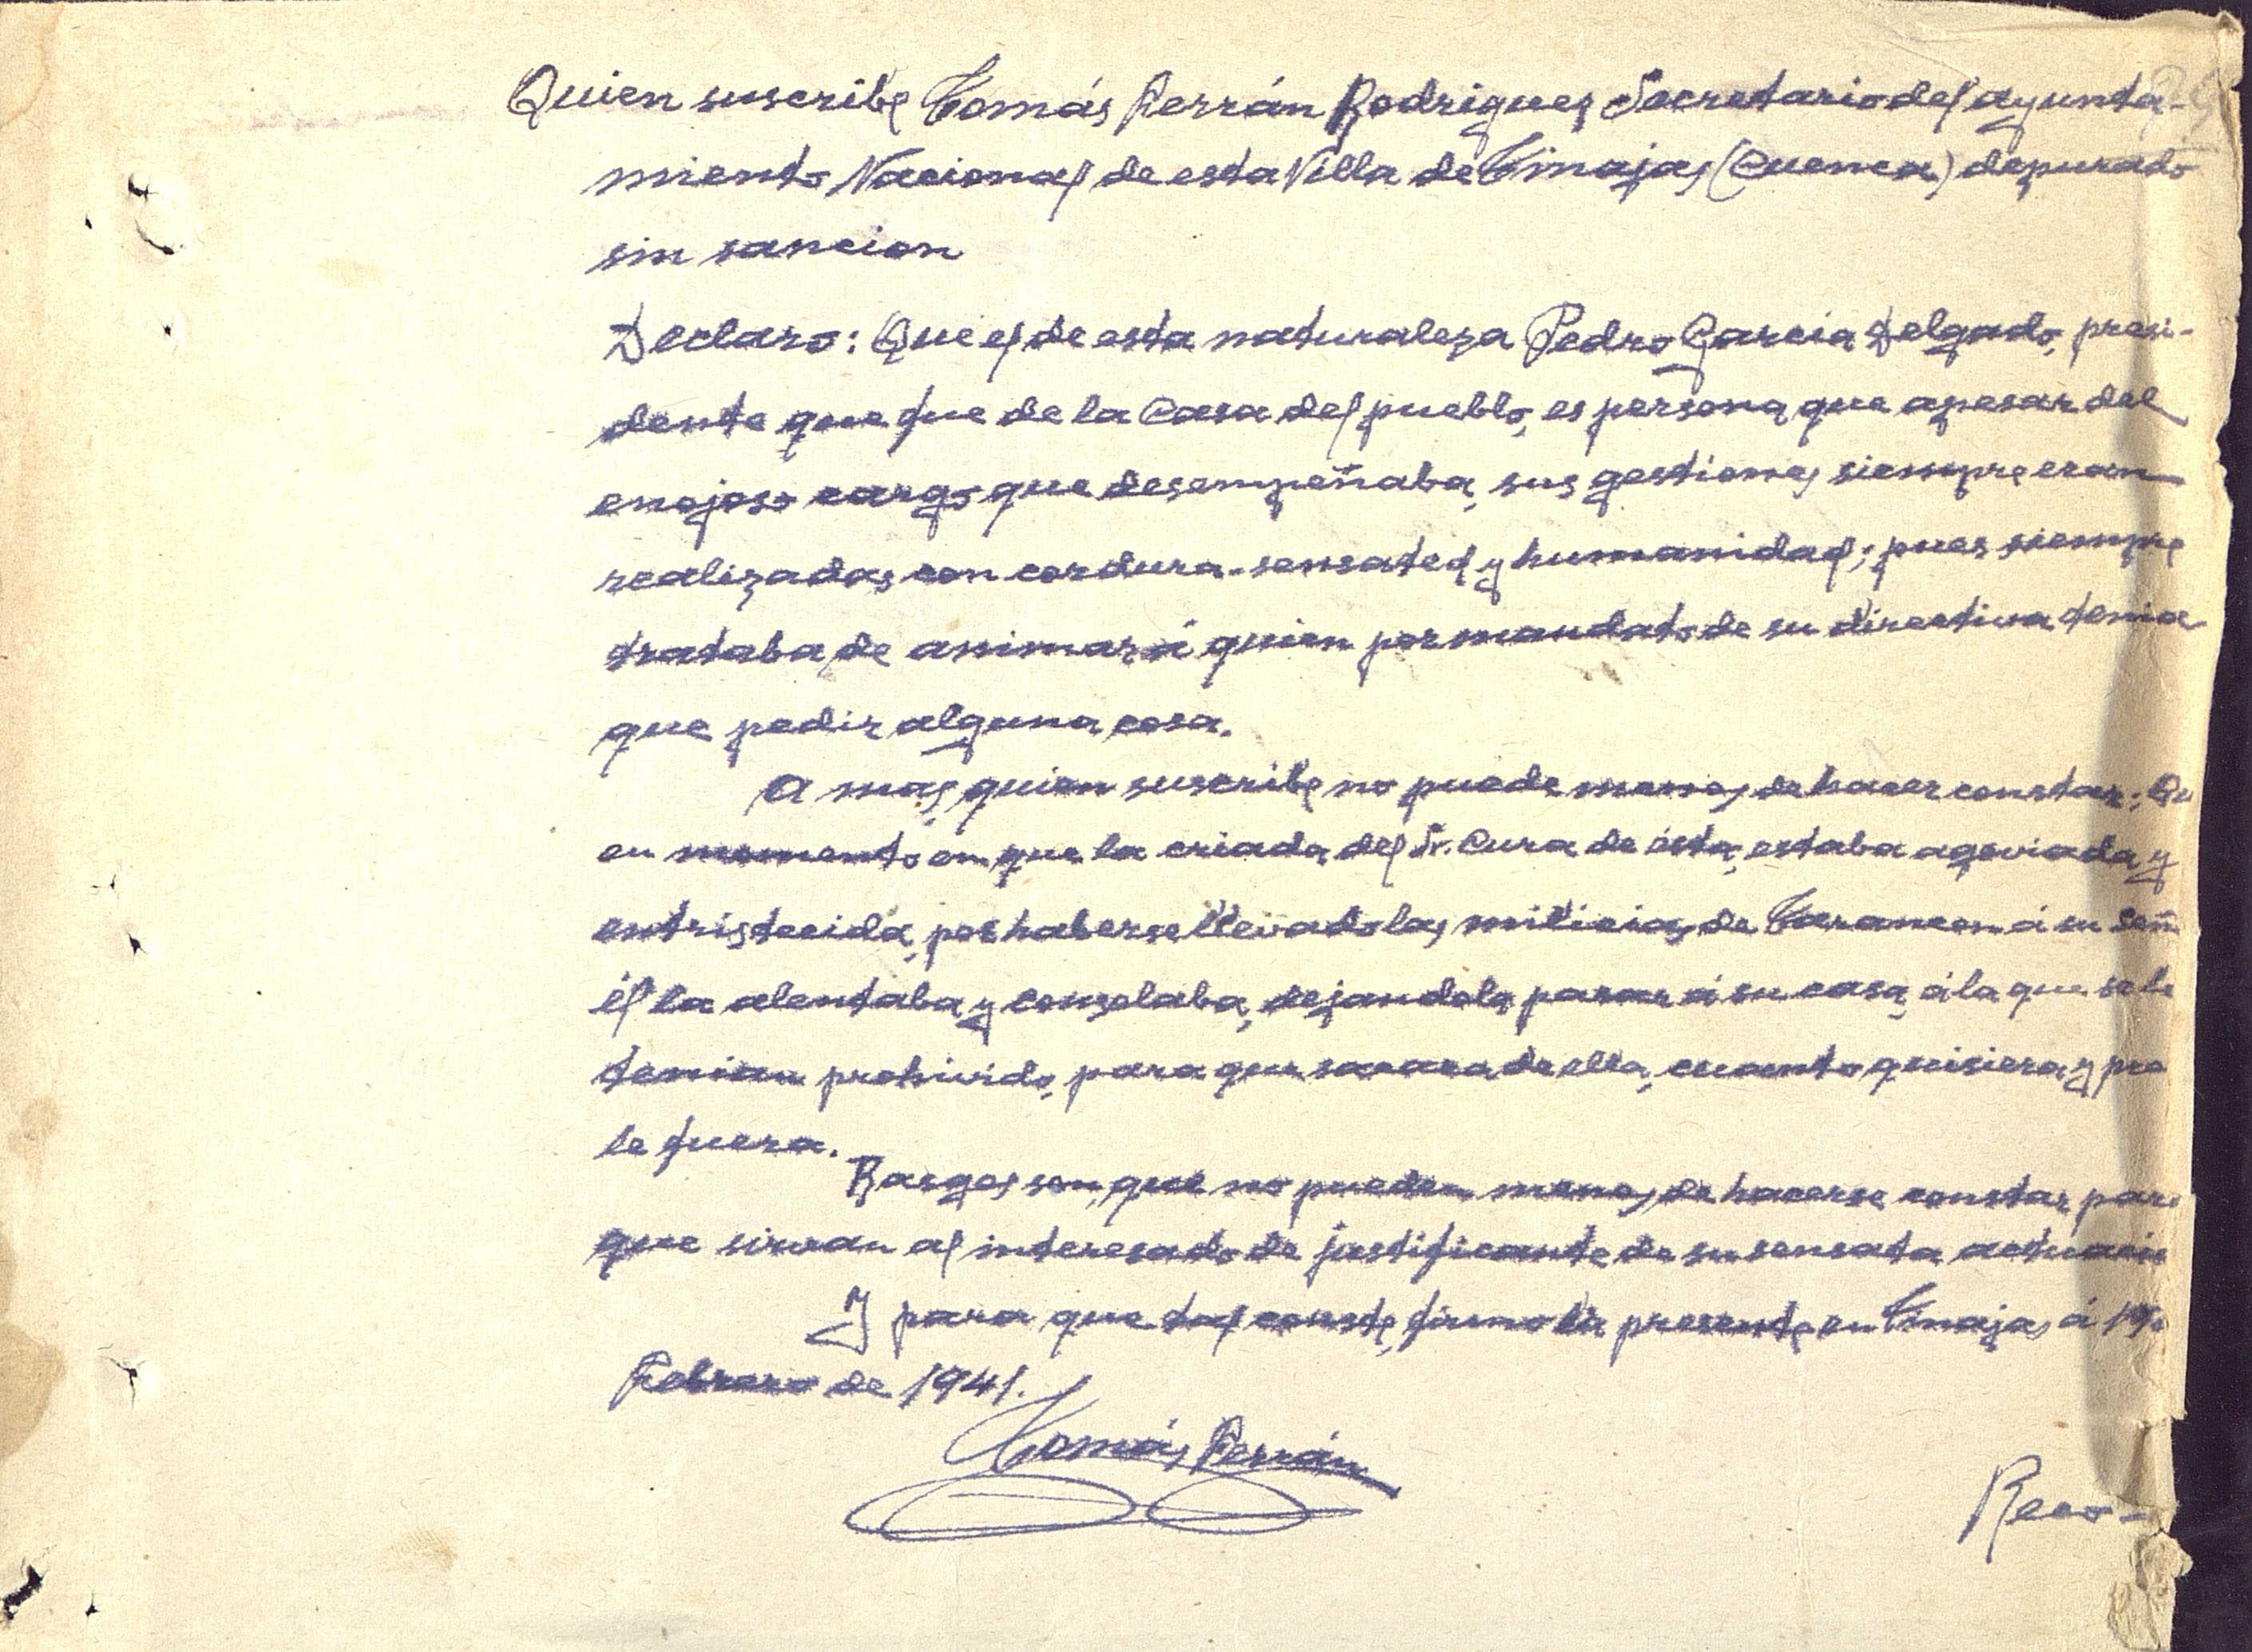 Quien suscribe Tomás Ferrán Rodriguez Secretario del ayunta-
miento Nacional de esta Villa de Tinajas (Cuenca) depurado
sin sancion
Declaro: Que el de esta naturaleza Pedro Garcia Delgado, presi-
dente que fue de la Casa del pueblo, es persona que apesar del
enojoso cargo que desempeñaba, sus gestiones siempre eran
realizadas con cordura - sensated y humanidad; pues siempre
trataba de animar á quien por mandato de su directiva tenia
que pedir alguna cosa.
A mas, quien suscribe no puede menos de hacer constar:
en momento en que la criada del Sr. Cura de ésta, estaba agoviada y
entristecida, por haberse llevado las milicias de Tarancon á su
él la alentaba y consolaba, dejandola pasar á su casa, á la que se lo
tenian prohivido, para que sacara de ella, cuanto quisiera y
le fuera.
Rasgos son, que no pueden menos de hacerse constar para
que sirvan al interesado de justificante de su sensata
Y para que tal conste, firmo la presente en Tinajas á
Febrero de 1941.
Tomás Ferrán
Reco-